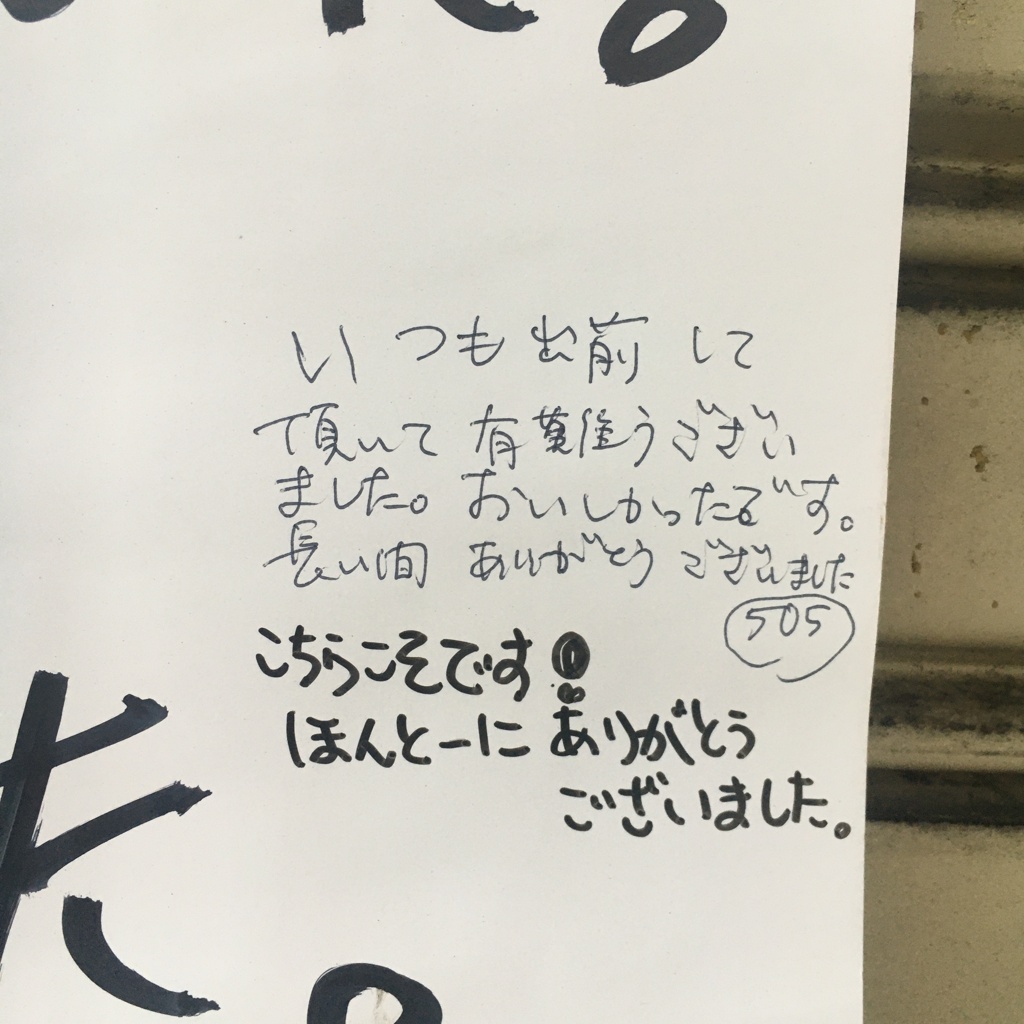 た。
いつも出前して
頂いて 有難うござい
ました。おいしかったです。
長い間 ありがとう ございました
505
こちらこそです!
ほんとーに ありがとう
ございました。
た。